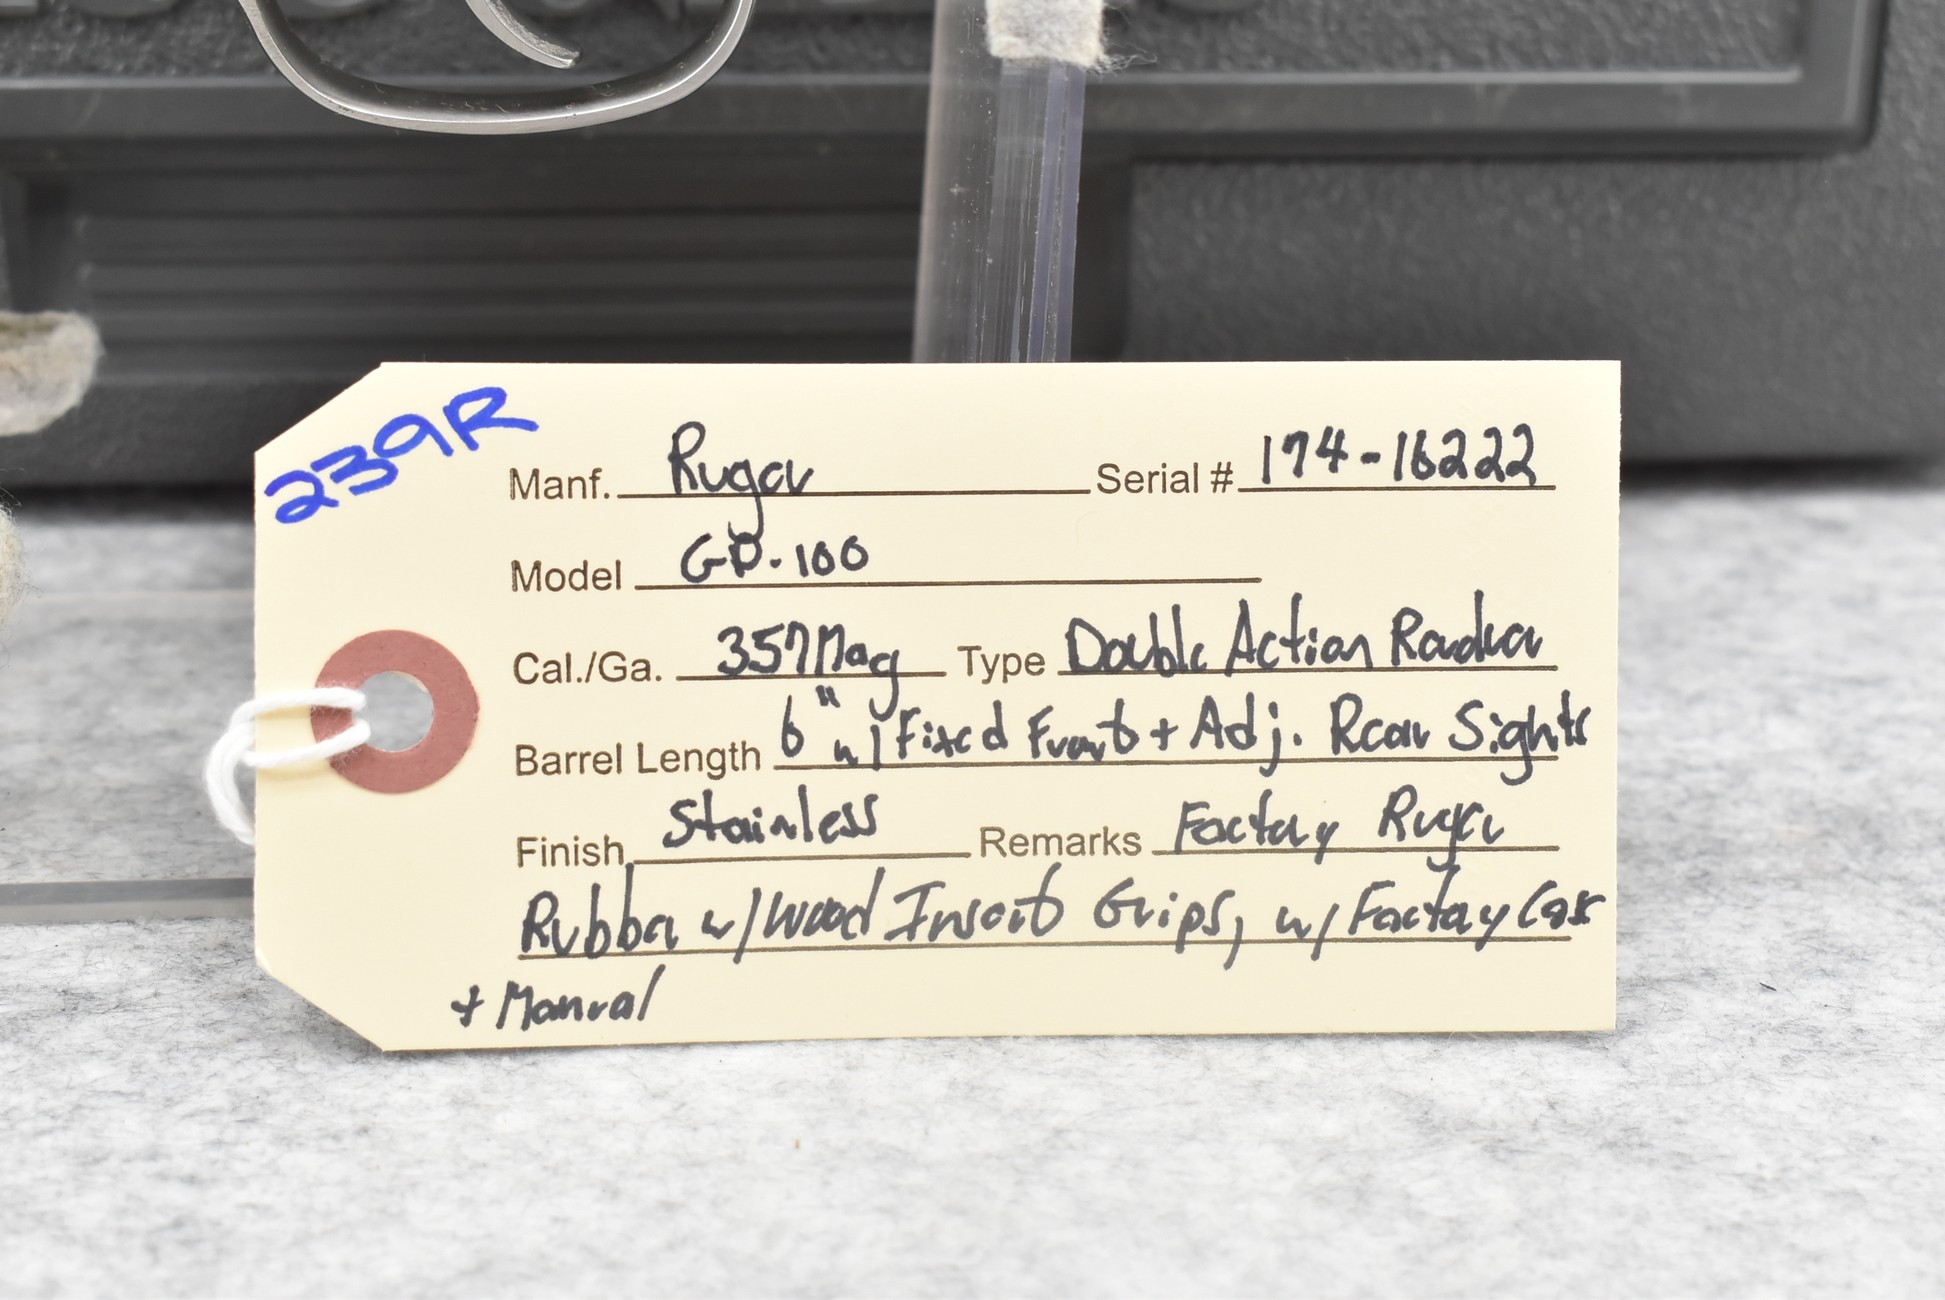 239R
Manf. Ruger Serial # 174-16222
Model GP.100
Cal./Ga. 357 Mag Type Double Action Revolver
Barrel Length 6" w/ Fixed Front + Adj. Rear Sights
Finish Stainless Remarks Factory Ruger
Rubber w/ Wood Insert Grips, w/ Factory Case
+ Manual